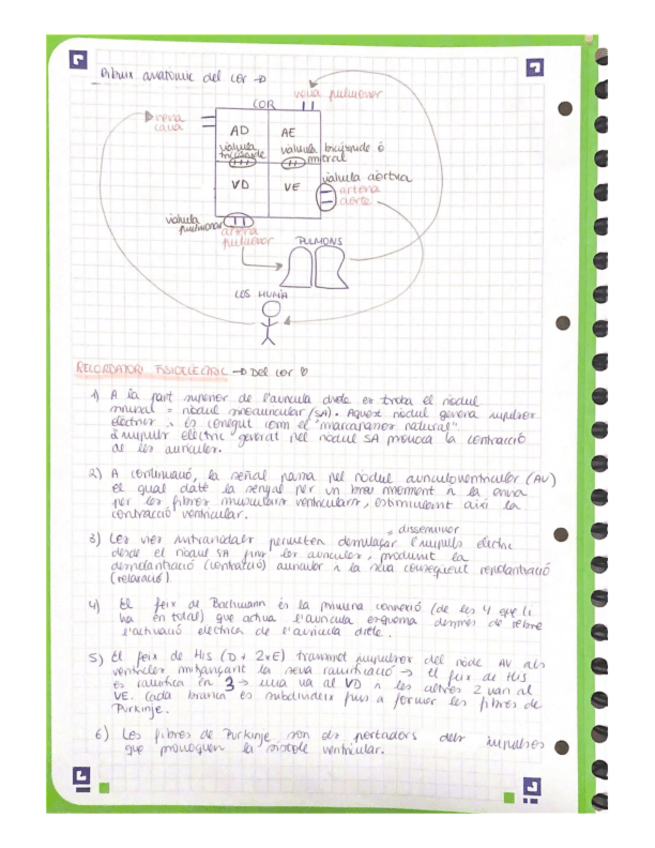 Dibuix anatòmic del cor →
vena pulmonar
COR
vena
cava
AD
AE
vàlvula
tricúspide
vàlvula bicúspide o
mitral
VD
VE
vàlvula aòrtica
artèria
aorta
vàlvula
pulmonar
artèria
pulmonar
PULMONS
COS HUMÀ
RECORDATORI FISIOELÈCTRIC → Del cor ♡
1) A la part superior de l'aurícula dreta es troba el nòdul
sinusal = nòdul sinoauricular (SA). Aquest nòdul genera impulsos
elèctrics i és conegut com el "marcapassos natural".
L'impuls elèctric generat pel nòdul SA provoca la contracció
de les aurícules.
2) A continuació, la señal passa pel nòdul auriculoventricular (AV)
el qual daté la senyal per un breu moment i la envia
per les fibres musculars ventriculars, estimulant així la
contracció ventricular.
= disseminar
3) Les vies internodals permeten desplaçar l'impuls elèctric
desde el nòdul SA fins les aurícules, produint la
despolarització (contracció) auricular i la seva conseqüent repolarització
(relaxació).
4) El feix de Bachmann és la primera connexió (de les 4 que hi
ha en total) que activa l'aurícula esquerra després de rebre
l'activació elèctrica de l'aurícula dreta.
5) El feix de His (D + 2xE) transmet impulsos del node AV als
ventricles mitjançant la seva ramificació → el feix de His
es ramifica en 3 → una va al VD i les altres 2 van al
VE. Cada branca es subdivideix fins a formar les fibres de
Purkinje.
6) Les fibres de Purkinje són els portadors dels impulsos
que provoquen la sístole ventricular.